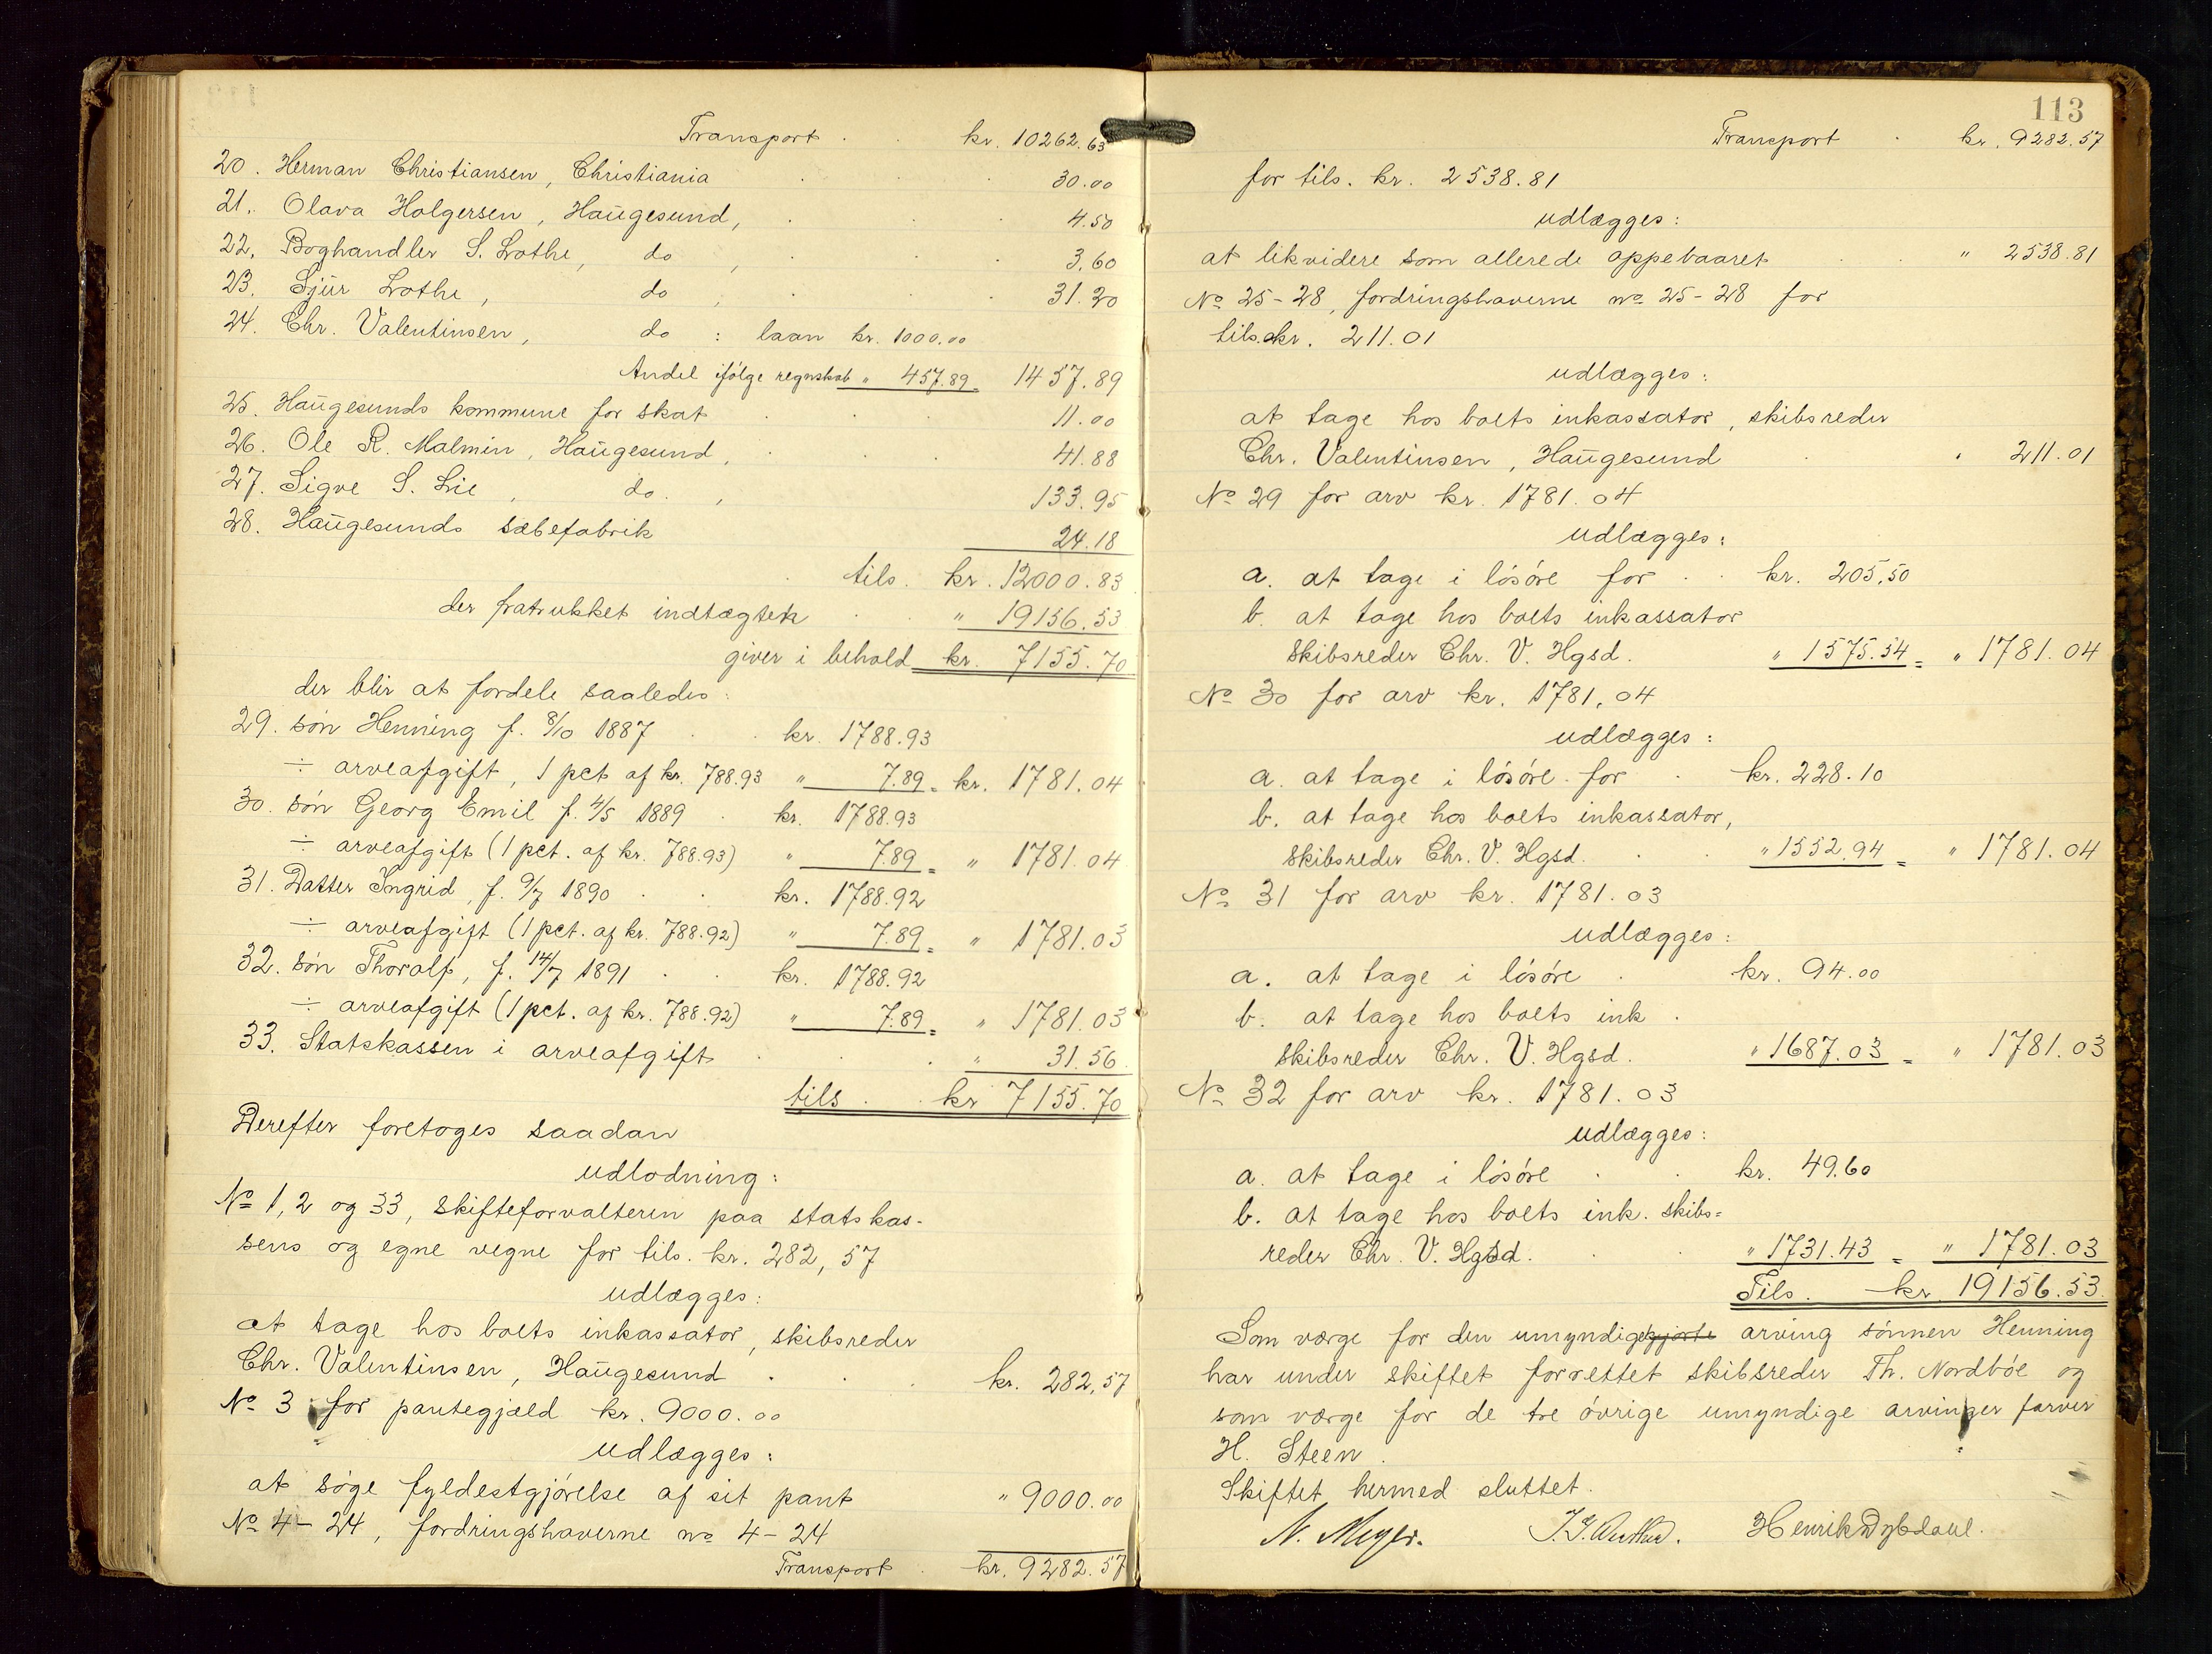 Transport . . kr. 10262.63
20. Herman Christiansen, Christiania . . . 30.00
21. Olava Holgersen, Haugesund, . . . 4.50
22. Boghandler S. Lothe, do , . . . 3.60
23. Sjur Lothe, do , . . . 31.20
24. Chr. Valentinsen, do : laan kr. 1000.00
Andel ifölge regnskab " 457.89 = 1457.89
25. Haugesunds kommune for skat . . . 11.00
26. Ole R. Malmin, Haugesund, . . . 41.88
27. Sigve S. Lie , do. , 133.95
28. Haugesunds sæbefabrik 24.18
tils. kr. 12000.83
der fratrukket indtægten . " 19156.53
giver i behold kr. 7155.70
der blir at fordele saaledes:
29. sön Henning f. 8/10 1887 . . kr. 1788.93
÷ arveafgift, 1 pct af kr. 788.93 " 7.89 = kr. 1781.04
30. sön Georg Emil f. 4/5 1889 . kr. 1788.93
÷ arveafgift (1 pct. af kr. 788.93) " 7.89 = " 1781.04
31. Datter Ingrid, f. 9/7 1890 . . kr. 1788.92
÷ arveafgift (1 pct. af kr. 788.92) " 7.89 = " 1781.03
32. sön Thoralf, f. 14/7 1891 . . kr. 1788.92
÷ arveafgift (1 pct. af kr. 788.92) " 7.89 = " 1781.03
33. Statskassen i arveafgift . . . " 31.56
tils . . kr 7155.70
Derefter foretoges saadan
udlodning:
No 1, 2 og 33, skifteforvalteren paa statskas-
sens og egne vegne for tils. kr. 282,57
udlægges:
at tage hos boets inkassator, skibsreder
Chr. Valentinsen, Haugesund . . . kr. 282,57
No 3 for pantegjæld kr. 9000.00
udlægges:
at söge fyldestgjörelse af sit pant " 9000.00
No 4-24, fordringshaverne no 4-24
Transport . kr. 9282.57
113
Transport . kr. 9282.57
for tils. kr. 2538.81
udlægges:
at likvidere som allerede oppebaaret . . " 2538.81
No 25-28, fordringshaverne no 25-28 for
tils. kr. 211.01
udlægges:
at tage hos boets inkassator, skibsreder
Chr. Valentinsen, Haugesund . " 211.01
No 29 for arv kr. 1781.04
udlægges:
a. at tage i lösöre for . . kr. 205,50
b. at tage hos boets inkassator
skibsreder Chr. V. Hgsd. " 1575.54 = " 1781.04
No 30 for arv kr. 1781,04
udlægges:
a. at tage i lösöre for . kr. 228.10
b. at tage hos boets inkassator,
skibsreder Chr. V. Hgsd. . . " 1552.94 = " 1781.04
No 31 for arv kr. 1781.03
udlægges:
a. at tage i lösöre . kr. 94.00
b. at tage hos boets ink .
skibsreder Chr. V. Hgsd. " 1687.03 = " 1781.03
No 32 for arv kr. 1781.03
udlægges:
a. at tage i lösöre . . kr. 49.60
b. at tage hos boets ink. skibs=
reder Chr. V. Hgsd. . . " 1731.43 = " 1781.03
Tils. kr 19156.53.
Som værge for den umyndigegjorte arving sönnen Henning
har under skiftet forrettet skibsreder Th. Nordböe og
som værge for de tre övrige umyndige arvinger farver
H. Steen.
Skiftet hermed sluttet.
N. Meyer. Henrik Dybdahl.